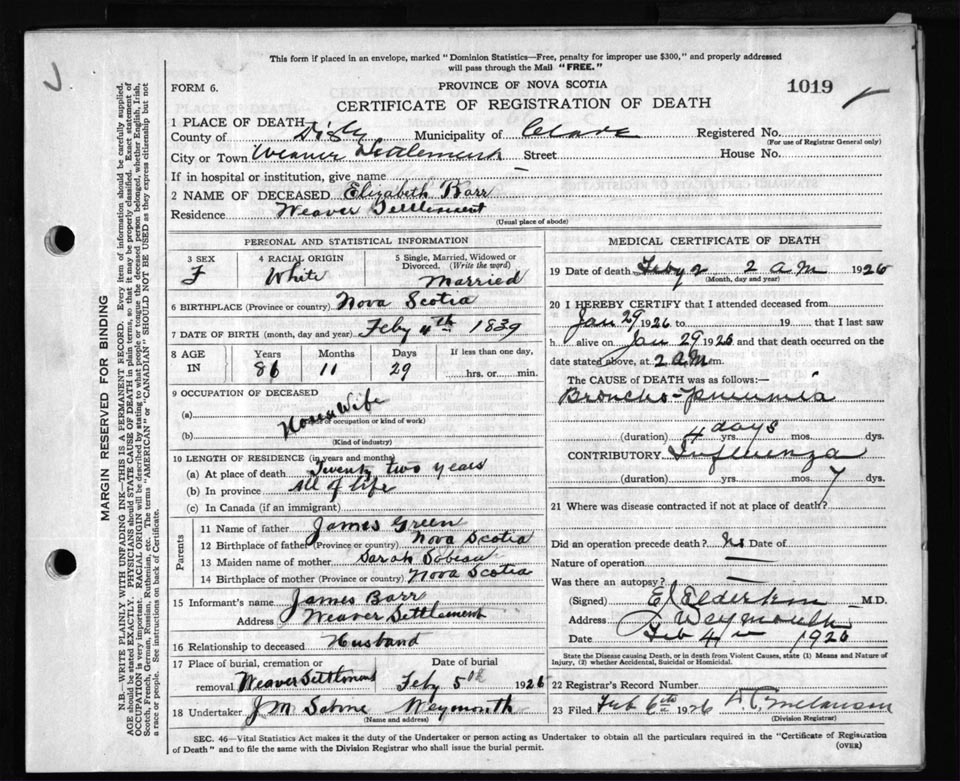 This form if placed in an envelope, marked "Dominion Statistics—Free, penalty for improper use $300," and properly addressed
will pass through the Mail "FREE."
FORM 6.
PROVINCE OF NOVA SCOTIA
1019
CERTIFICATE OF REGISTRATION OF DEATH
1 PLACE OF DEATH
County of Digby Municipality of Clare Registered No.
(For use of Registrar General only)
City or Town Weaver Settlement Street House No.
If in hospital or institution, give name —
2 NAME OF DECEASED Elizabeth Barr
Residence Weaver Settlement
(Usual place of abode)
PERSONAL AND STATISTICAL INFORMATION
3 SEX 4 RACIAL ORIGIN 5 Single, Married, Widowed or
Divorced. (Write the word)
F White Married
6 BIRTHPLACE (Province or country) Nova Scotia
7 DATE OF BIRTH (month, day and year) Feby 4th 1839
8 AGE Years Months Days If less than one day,
IN 86 11 29 hrs. or min.
9 OCCUPATION OF DECEASED
(a) House Wife
(Trade or occupation or kind of work)
(b)
(Kind of industry)
10 LENGTH OF RESIDENCE (in years and months)
(a) At place of death Twenty two years
(b) In province All of life
(c) In Canada (if an immigrant)
Parents
11 Name of father James Green
12 Birthplace of father (Province or country) Nova Scotia
13 Maiden name of mother Sarah
14 Birthplace of mother (Province or country) Nova Scotia
15 Informant's name James Barr
Address Weaver Settlement
16 Relationship to deceased Husband
17 Place of burial, cremation or Date of burial
removal Weaver Settlement Feby 5th 1926
18 Undertaker J M Sabine Weymouth
(Name and address)
MEDICAL CERTIFICATE OF DEATH
19 Date of death Feby 2 2 a.m 1926
(Month, day and year)
20 I HEREBY CERTIFY that I attended deceased from
Jan 29 1926 to 19 that I last saw
h alive on Jan 29 1926 and that death occurred on the
date stated above, at 2 AM m.
The CAUSE OF DEATH was as follows:—
Broncho-pneumia
(duration) 4 days yrs. mos. dys.
CONTRIBUTORY Influenza
(duration) yrs. mos. 7 dys.
21 Where was disease contracted if not at place of death?
Did an operation precede death? No Date of
Nature of operation —
Was there an autopsy? —
(Signed) Elderkin M.D.
Address Weymouth
Date Feb 4 1926
State the Disease causing Death, or in death from Violent Causes, state (1) Means and Nature of
Injury, (2) whether Accidental, Suicidal or Homicidal.
22 Registrar's Record Number
23 Filed Feb 6th 1926 Melanson
(Division Registrar)
SEC. 46—Vital Statistics Act makes it the duty of the Undertaker or person acting as Undertaker to obtain all the particulars required in the "Certificate of Registration
of Death" and to file the same with the Division Registrar who shall issue the burial permit.
(OVER)
MARGIN RESERVED FOR BINDING
N.B.—WRITE PLAINLY WITH UNFADING INK—THIS IS A PERMANENT RECORD. Every item of information should be carefully supplied.
AGE should be stated EXACTLY. PHYSICIANS should STATE CAUSE OF DEATH in plain terms, so that it may be properly classified. Exact statement of
OCCUPATION is very important. RACIAL ORIGIN will be described by stating to what people or tongue the deceased person belonged, whether English, Irish,
Scotch, French, German, Russian, Ruthenian, etc. The terms "AMERICAN" or "CANADIAN" SHOULD NOT BE USED as they express citizenship but not
a race or people. See instructions on back of Certificate.